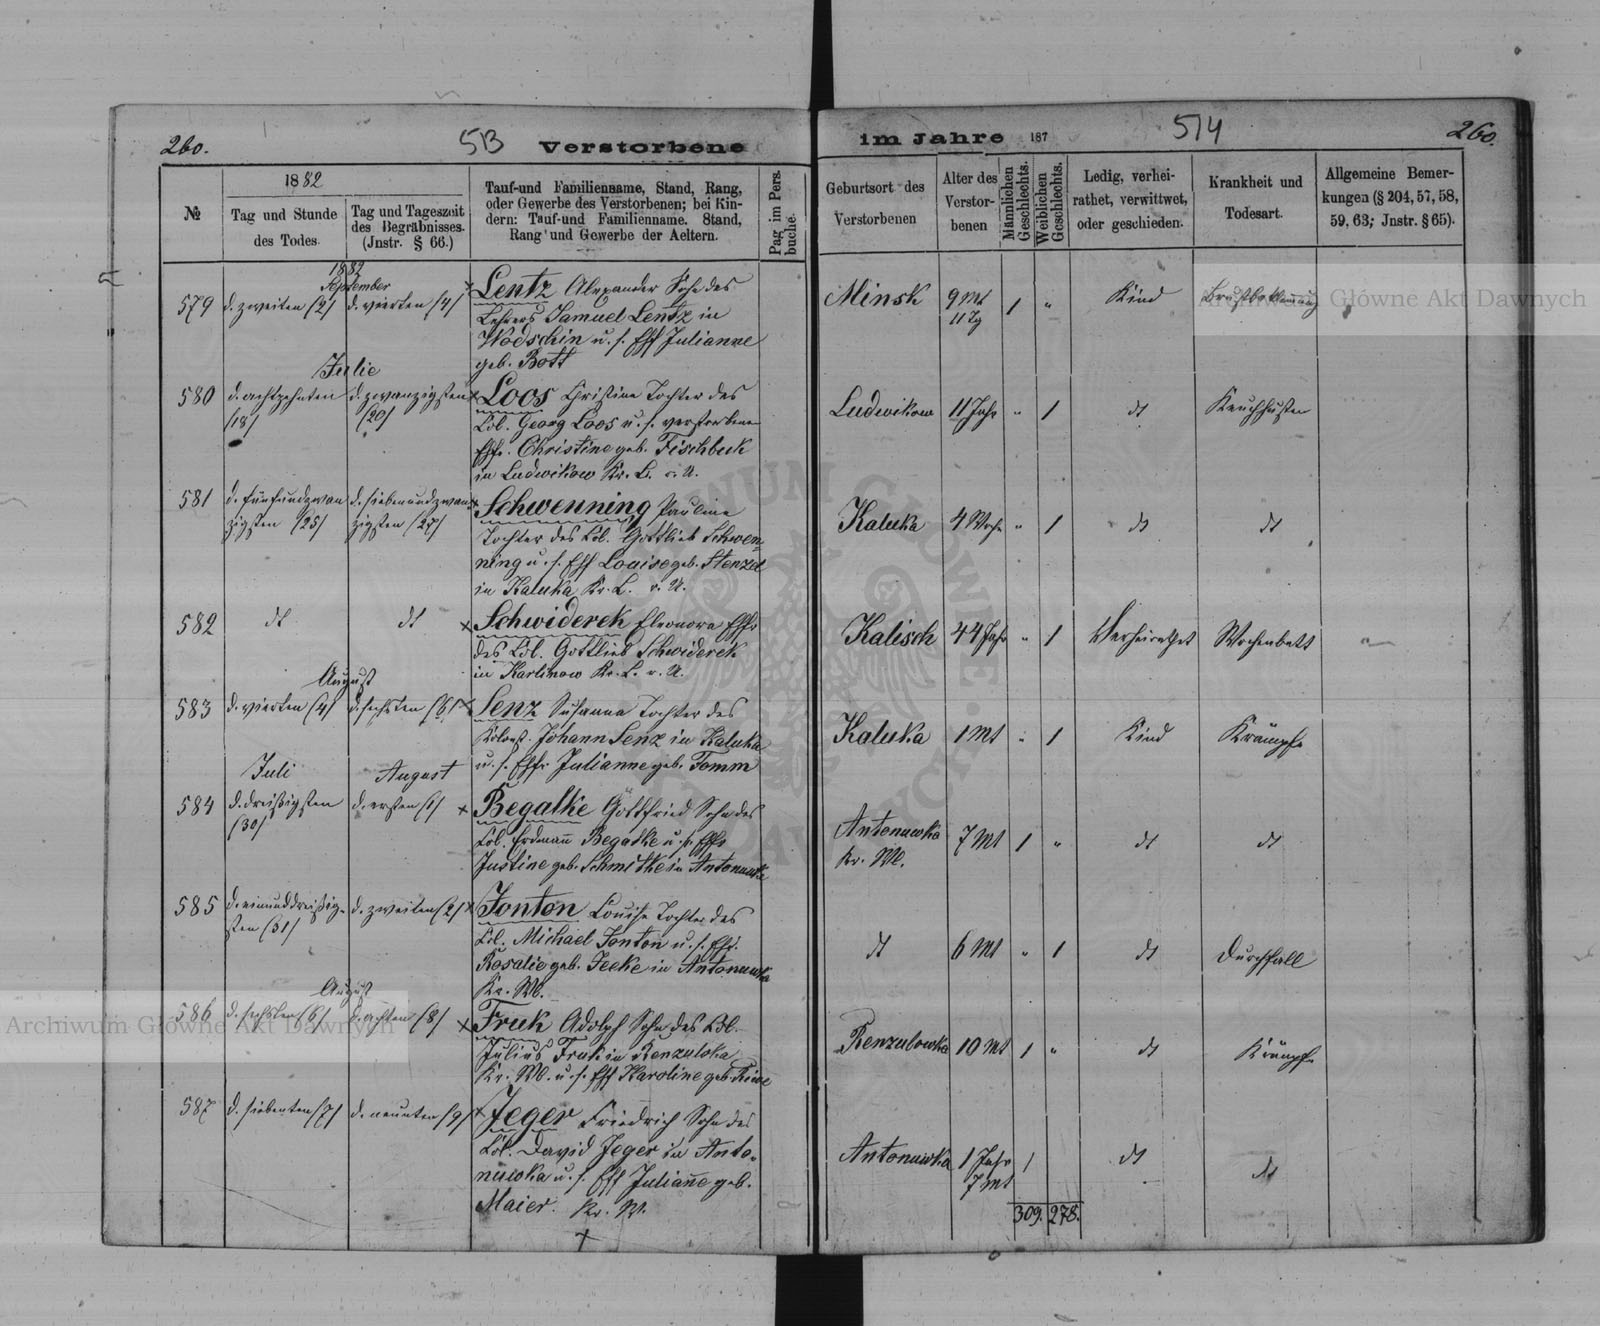 260.
513
Verstorbene
im Jahre 187
514
260.
№
1882
Tag und Stunde
des Todes.
Tag und Tageszeit
des Begräbnisses.
(Jnstr. § 66.)
Tauf-und Familienname, Stand, Rang,
oder Gewerbe des Verstorbenen; bei Kin-
dern: Tauf-und Familienname. Stand,
Rang und Gewerbe der Aeltern.
Pag. im Pers.
buche.
Geburtsort des
Verstorbenen
Alter des
Verstor-
benen
Männlichen
Geschlechts.
Weiblichen
Geschlechts.
Ledig, verhei-
rathet, verwittwet,
oder geschieden.
Krankheit und
Todesart.
Allgemeine Bemer-
kungen (§ 204, 57, 58,
59, 63; Jnstr. § 65).
1882
September
579 d. zweiten /2/ d. vierten /4/ Lentz Alexander Sohn des
Lehrers Samuel Lentz in
Wodschin u. s. Eff Julianne
geb. Bott
Minsk 9 Mt 11 Tg 1 „ Kind
Julie
580 d. achtzehnten /18/ d. zwanzigsten /20/ × Loos Christine Tochter des
Col. Georg Loos u. s. verstorbenen
Effr. Christine geb. Fischbuch
in Ludwikow Kr. L. v. U.
Ludwikow 11 Jahr „ 1 dt Keuchhusten
581 d. fünfundzwan
zigsten /25/ d. siebenundzwan
zigsten /27/ Schwenning Pauline
Tochter des Col. Gottlieb Schwen-
ning u. s. Eff Louise geb. Stenzel
in Kaluka Kr. L. v. U.
Kaluka 4 Woch „ 1 dt dt
582 dt dt × Schwiderek Eleonora Effr
des Col. Gottlieb Schwiderek
in Karlinow Kr. L. v. U.
Kalisch 44 Jahr „ 1 Verheirathet Wochenbett
August
583 d. vierten /4/ d. sechsten /6/ × Senz Susanna Tochter des
Kolonist. Johann Senz in Kaluka
u. s. Effr Julianne geb. Tomm
Kaluka 1 Mt „ 1 Kind Krämpfe
Juli August
584 d. dreißigsten /30/ d. ersten /1/ × Begatke Gottfried Sohn des
Col. Erdmañ Begatke u. s. Effr
Justine geb. Schmitke in Antonuwka
Antonuwka
Kr. W.
7 Mt 1 „ dt dt
585 d. einunddreißig-
sten /31/ d. zweiten /2/ × Jonton Louise Tochter des
Col. Michael Jonton u. s. Effr.
Rosalie geb. Jeeke in Antonuwka
Kr. W.
dt 6 Mt „ 1 dt Durchfall
August
586 d. sechsten /6/ d. achten /8/ × Fruk Adolph Sohn des Col.
Julius Fruk in Renzulska
Kr. W. u. s. Eff Karoline geb.
Renzulowka 10 Mt 1 „ dt Krämpfe
587 d. siebenten /7/ d. neunten /9/ × Jeger Friedrich Sohn des
Col. David Jeger in Anto-
nuwka u. s. Eff Juliañe geb.
Maier. Kr. W.
Antonuwka 1 Jahr 7 Mt 1 dt dt
309. 278.
Archiwum Główne Akt Dawnych
Główne Akt Dawnych
ARCHIWUM GŁÓWNE AKT DAWNYCH